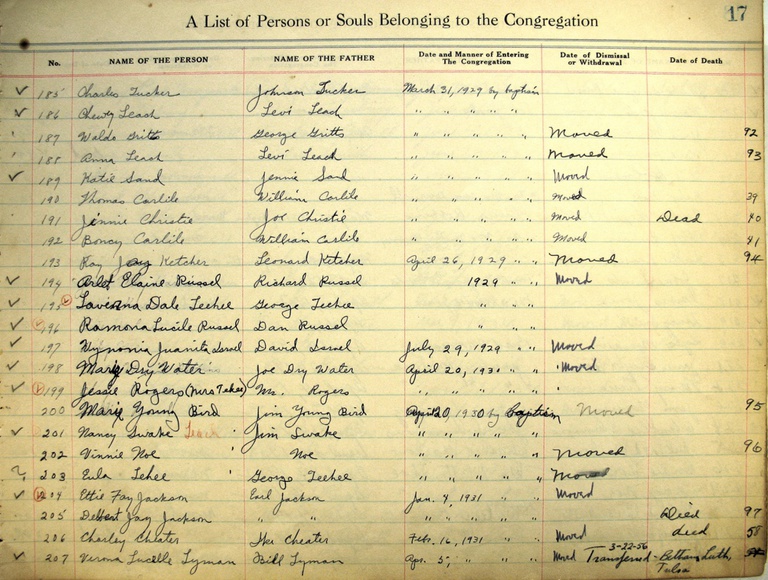 17
A List of Persons or Souls Belonging to the Congregation
No. NAME OF THE PERSON NAME OF THE FATHER Date and Manner of Entering The Congregation Date of Dismissal or Withdrawal Date of Death
✓ 185 Charles Tucker Johnson Tucker March 31, 1929 by baptism
✓ 186 Chewy Leach Levi Leach " " " " "
187 Waldo Gritts George Gritts " " " " " Moved 92
188 Anna Leach Levi Leach " " " " " Moved 93
✓ 189 Katie Sand Jennie Sand " " " " " Moved
190 Thomas Carlile William Carlile " " " " " Moved 39
191 Jennie Christie Joe Christie " " " " " Moved Dead 40
192 Boncy Carlile William Carlile " " " " " Moved 41
193 Ray Jay Ketcher Leonard Ketcher April 26, 1929 " " Moved 94
✓ 194 Elaine Russel Richard Russel 1929 " " Moved
✓ 195 Dale Teehee George Teehee " "
✓ 196 Ramona Lucile Russel Dan Russel " "
✓ 197 Wynonia Juanita Israel David Israel July 29, 1929 " " Moved
✓ 198 Mary Dry Water Joe Dry Water April 20, 1930 " " Moved
✓ 199 Jessie Rogers (Mrs ) Rogers " " " " "
200 Marie Young Bird Jim Young Bird April 20, 1930 by baptism Moved 95
✓ 201 Nancy Swake Leach Jim Swake " " " " "
202 Vinnie Noe Noe " " " " " Moved 96
? 203 Eula Tehee George Teehee " " " " " Moved
✓ 204 Ettie Fay Jackson Earl Jackson Jan. 4, 1931 " " Moved
205 Delbert Jay Jackson " " " " " " " Died 97
206 Charley Cheater Ike Cheater Feb. 16, 1931 " " Moved died 58
✓ 207 Verona Lucille Lyman Bill Lyman Apr. 5, " " " Moved 3-22-56 Transferred - Bethany Luth, Tulsa